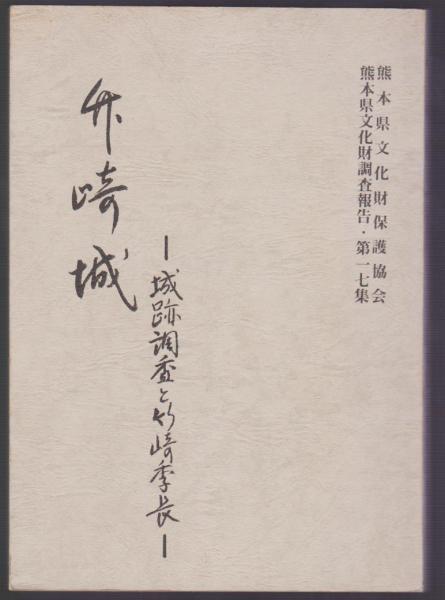 熊本県文化財保護協会
熊本県文化財調査報告・第一七集
竹崎城
―城跡調査と竹崎季長―